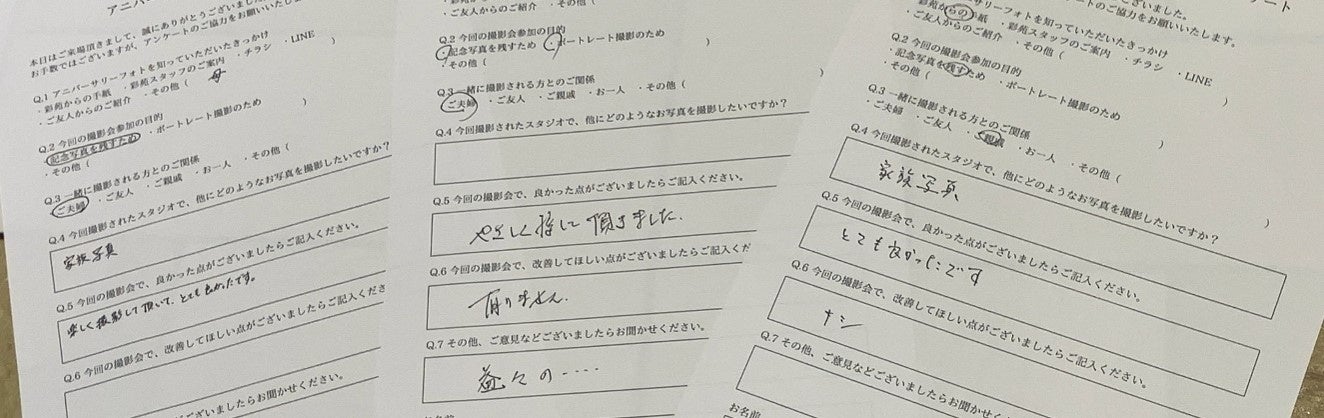 アニバー
本日はご来場頂きまして、誠にありがとうございました
お手数ではございますが、アンケートのご協力をお願いいたします
Q.1 アニバーサリーフォトを知っていただいたきっかけ
・彩苑からの手紙 ・彩苑スタッフのご案内 ・チラシ ・LINE
・ご友人からのご紹介 ・その他( 母
)
Q.2 今回の撮影会参加の目的
・記念写真を残すため ・ポートレート撮影のため
・その他(
)
Q.3 一緒に撮影される方とのご関係
・ご夫婦 ・ご友人 ・ご親戚 ・お一人 ・その他(
Q.4 今回撮影されたスタジオで、他にどのようなお写真を撮影したいですか?
家族写真
Q.5 今回の撮影会で、良かった点がございましたらご記入ください。
楽しく撮影して頂いて、とても良かったです。
Q.6 今回の撮影会で、改善してほしい点がございましたらご記入くださ
ございましたらお聞かせください。
・ご友人からのご紹介 ・その他(
Q.2 今回の撮影会参加の目的
・記念写真を残すため ・ポートレート撮影のため
・その他(
)
Q.3 一緒に撮影される方とのご関係
・ご夫婦 ・ご友人 ・ご親戚 ・お一人 ・その他(
)
Q.4 今回撮影されたスタジオで、他にどのようなお写真を撮影したいですか?
Q.5 今回の撮影会で、良かった点がございましたらご記入ください。
やさしく接して頂きました.
Q.6 今回の撮影会で、改善してほしい点がございましたらご記入くだ
有りません.
Q.7 その他、ご意見などございましたらお聞かせください。
益々の‥‥
お名前
ート
ございました。
のご協力をお願いいたします。
ーサリーフォトを知っていただいたきっかけ
・彩苑からの手紙 ・彩苑スタッフのご案内 ・チラシ ・LINE
・ご友人からのご紹介 ・その他(
)
Q.2 今回の撮影会参加の目的
・記念写真を残すため ・ポートレート撮影のため
・その他(
)
Q.3 一緒に撮影される方とのご関係
・ご夫婦 ・ご友人 ・ご親戚 ・お一人 ・その他(
)
Q.4 今回撮影されたスタジオで、他にどのようなお写真を撮影したいですか?
家族写真
Q.5 今回の撮影会で、良かった点がございましたらご記入ください。
とても良かったです
Q.6 今回の撮影会で、改善してほしい点がございましたらご記入ください。
ナシ
Q.7 その他、ご意見などございましたらお聞かせください。
お名前